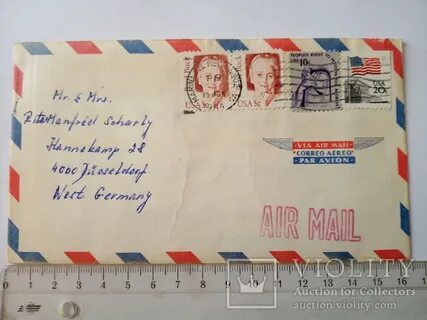 USA 5c
USA 5c
PEOPLE'S RIGHT TO
USA 10c
USA
20c
Mr & Mrs.
Rita Manfred
Hannekamp 28
4000 Düsseldorf
West Germany
VIA AIR MAIL
"CORREO AEREO"
PAR AVION
AIR MAIL
1 2 3 4 5 6 7 8 9 10 11 12 13 14 15 16
VIOLITY
Auction for Collectors
auction.violity.com